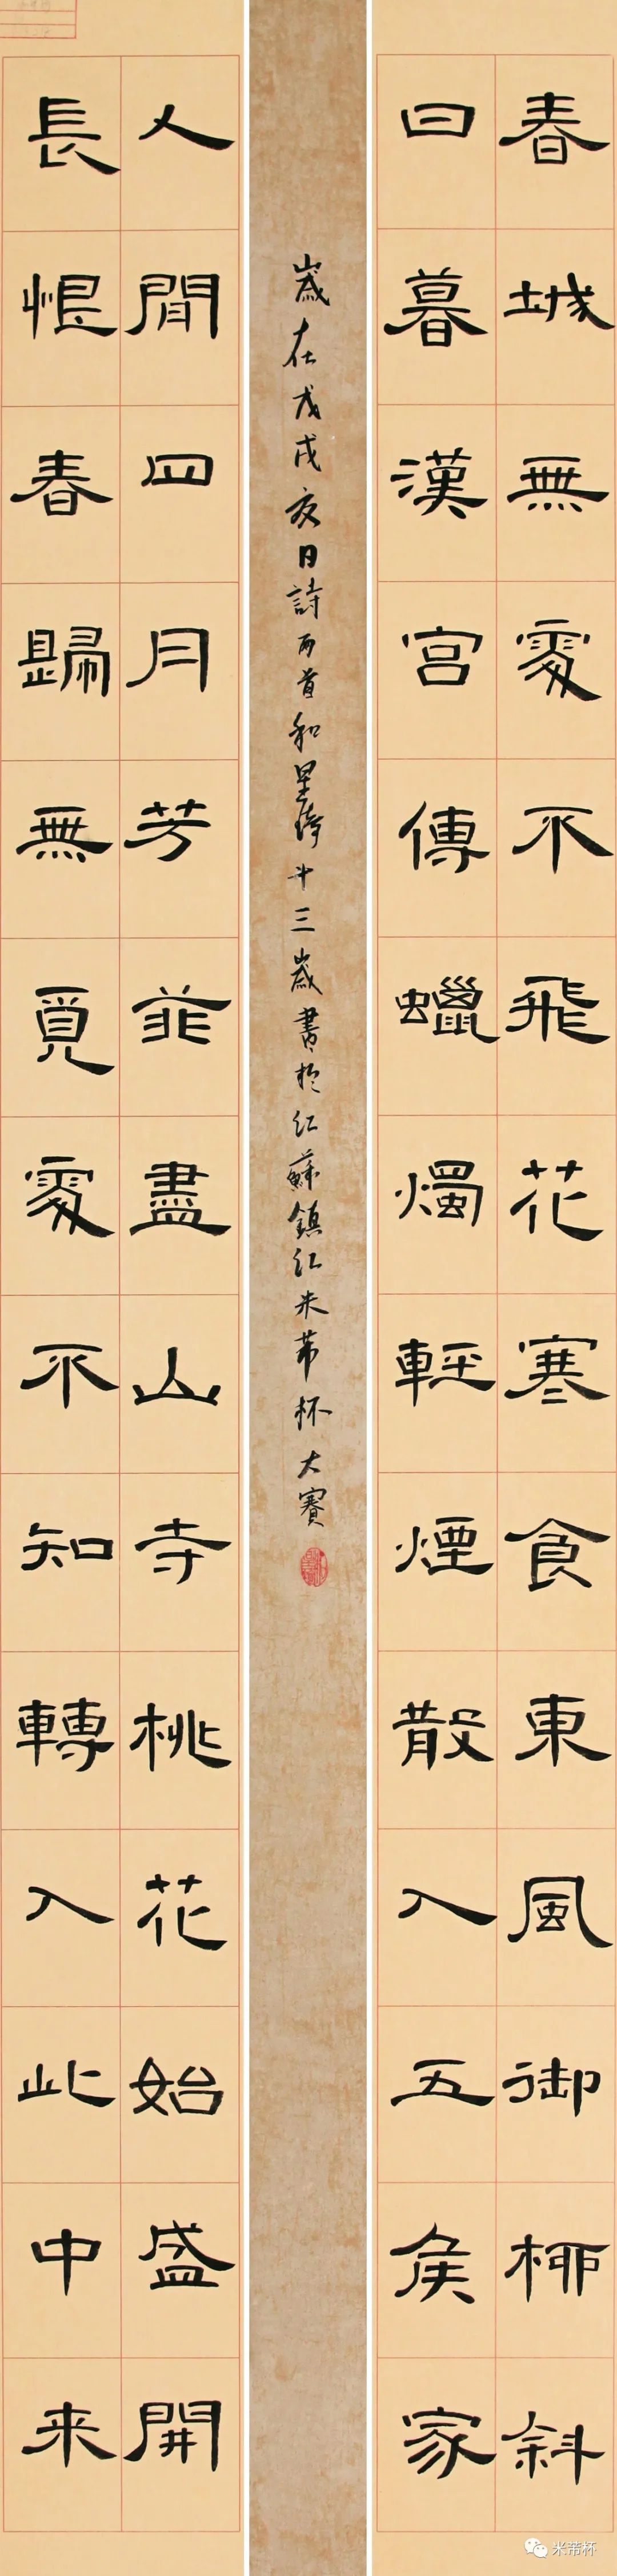 春城無處不飛花寒食東風御柳斜
日暮漢宮傳蠟燭輕煙散入五侯家
人間四月芳菲盡山寺桃花始盛開
長恨春歸無覓處不知轉入此中来
歲在戊戌夜日詩两首和星綺十三歲書於江蘇鎮江米芾杯大賽
米芾杯